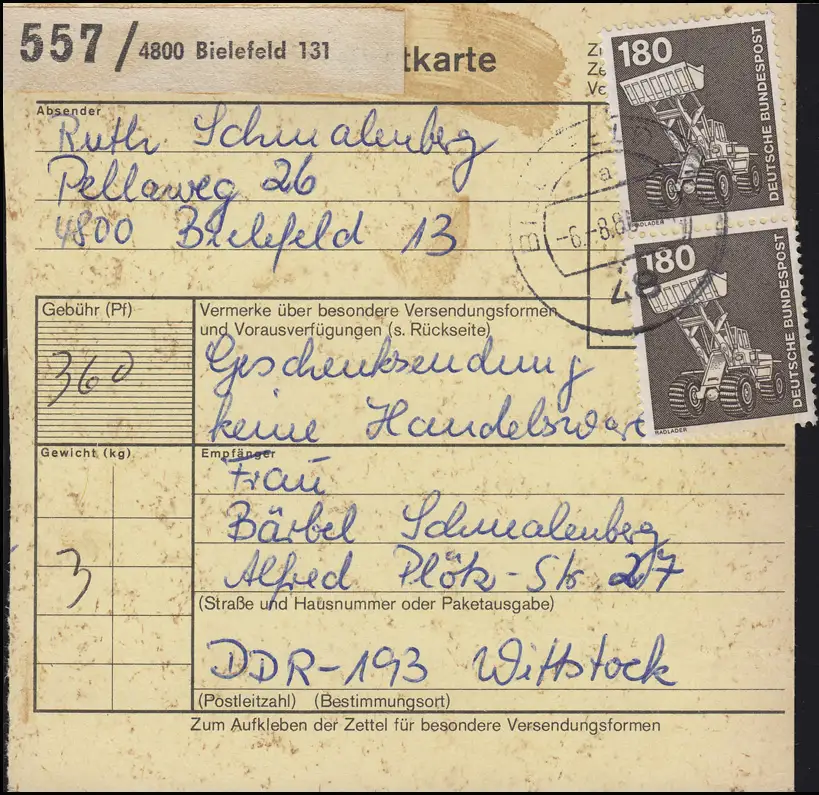 557/4800 Bielefeld 131
tkarte
Absender
Ruth Schmalenberg
Pellaweg 26
4800 Bielefeld 13
180
DEUTSCHE BUNDESPOST
RADLADER
180
DEUTSCHE BUNDESPOST
RADLADER
a
-6.-8.8
87
Gebühr (Pf)
360
Vermerke über besondere Versendungsformen
und Vorausverfügungen (s. Rückseite)
Geschenksendung
keine Handelsware
Gewicht (kg)
3
Empfänger
Frau
Bärbel Schmalenberg
Alfred Plötz-Str 27
(Straße und Hausnummer oder Paketausgabe)
DDR-193 Wittstock
(Postleitzahl) (Bestimmungsort)
Zum Aufkleben der Zettel für besondere Versendungsformen